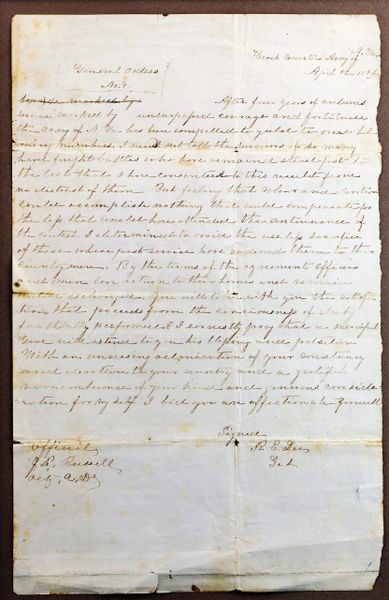 Head Quarters Army of N. Va.
April the 10th
General Orders
No. 9.
After four years of arduous
service marked by unsurpassed courage and fortitude
the Army of N. Va has been compelled to yield to overwhel
ming numbers. I need not tell the survivors of so many
hard fought battles who have remained steadfast to
the last that I have consented to this result from
no distrust of them. But feeling that valour and devotion
could accomplish nothing that could compensate for
the loss that would have attended the continuance of
the contest I determined to avoid the useless sacrifice
of those whose past service have endeared them to their
Countrymen. By the terms of the agreement Officers
and men can return to their homes and remain
until exchanged. You will take with you the satisfac
tion that proceeds from the consciousness of duty
faithfully performed & I earnestly pray that a merciful
God will extend to you his blessing and protection
With an unceasing admiration of your constancy
and devotion to your country and a grateful
remembrance of your kind and generous conside
ration for myself I bid you an affectionate farewell
Signed
R. E. Lee
Genl
Official
J. R. Russell
Actg. A. D.